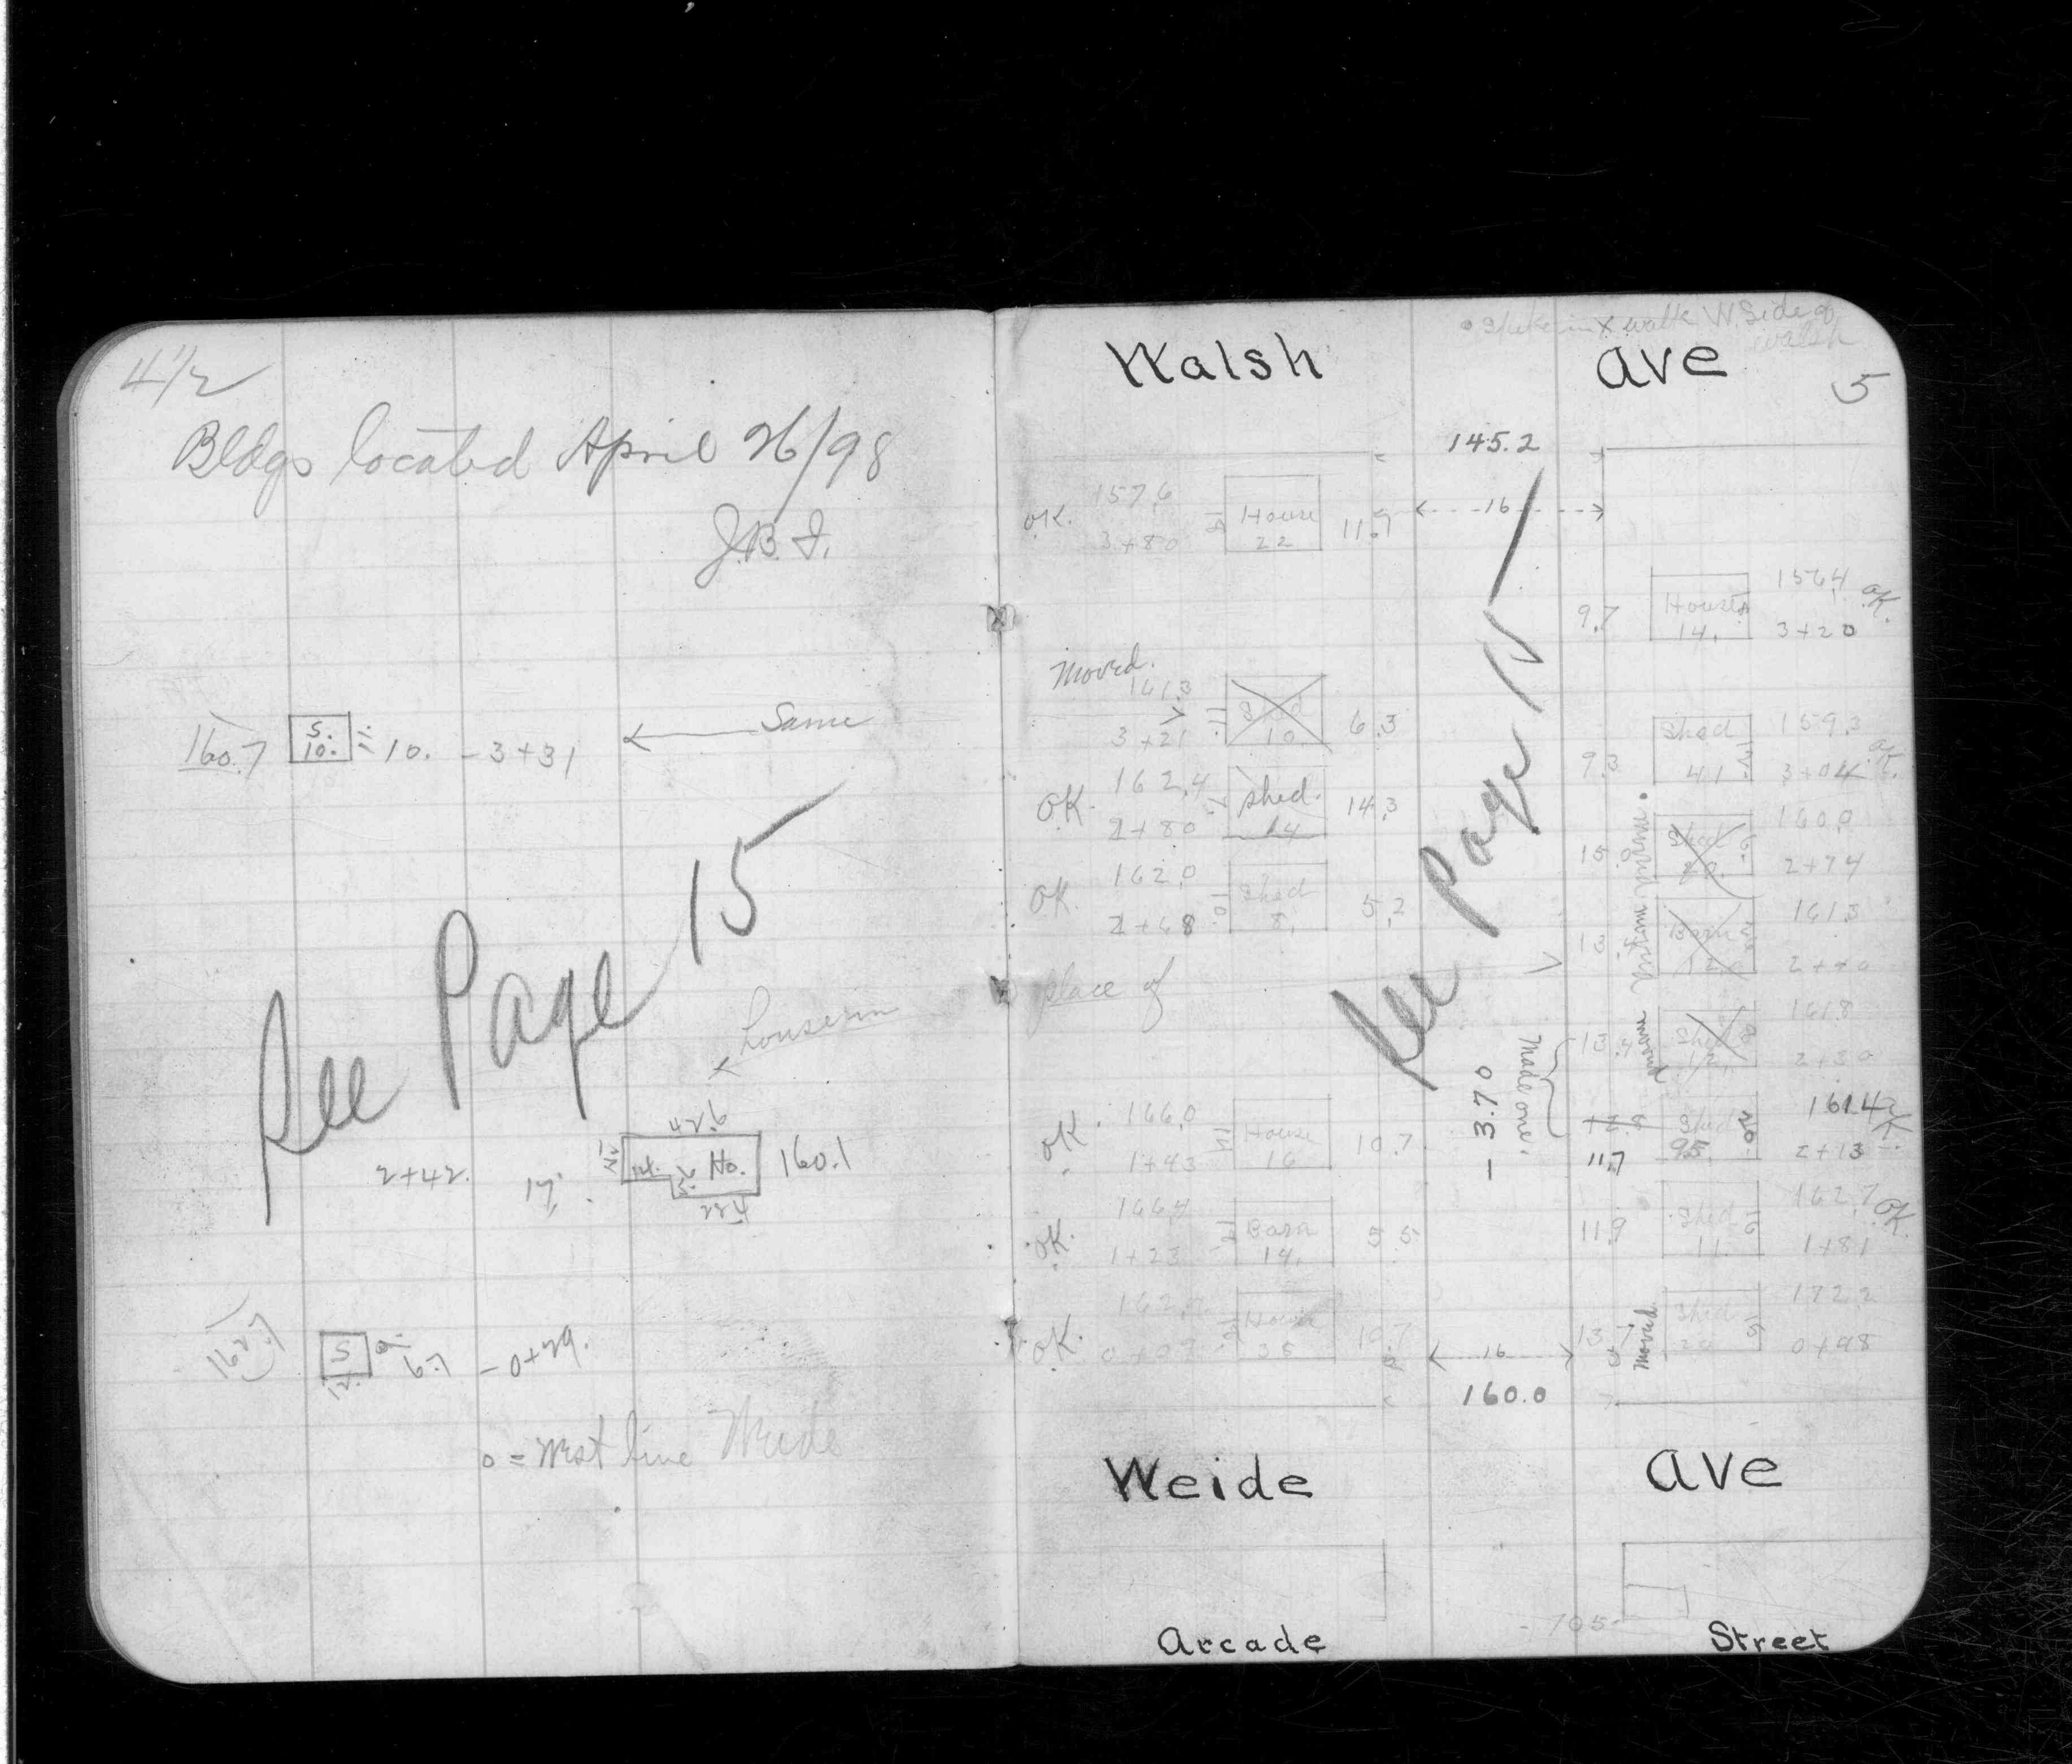 4 1/2
Bldgs located April 26/98
J.B.I.
160.7 S. 10. 11 10. - 3+31 Same
See Page 15
house in
42.6
2+42. 17. 14. Ho. 160.1
22.4
162.7 S 12. 9. 6.7 - 0+29.
0 = West line Weide
Spike in X walk W. Side of
Walsh
Walsh Ave
5
145.2
OK. 157.6 House 11.7 16
3+80 22
9.7 House 156.4 OK.
14. 3+20
Moved.
161.3 Shed 6.3
3+21 11. 10.
9.3 Shed 159.3 OK.
41 3+04
OK. 162.4 Shed. 14.3
2+80 14
15.0 Shed 160.9
20. 2+74
OK. 162.0 Shed 5.2
2+68 10. 8.
13 Barn 161.3
12. 2+40
place of
See Page 15
13.4 Shed 161.8
12. 2+30
- 3.70
Made one.
OK. 166.0 House 10.7
1+43 14 16
12.8 Shed 161.4 OK.
11.7 95. 20. 2+13
OK. 166.4 Barn 5.5
1+23 14.
11.9 Shed 162.7 OK.
11. 1+81
OK. House 10.7 16
35
13.7 Moved Shed 172.2
0+98
160.0
Weide Ave
705
Arcade Street